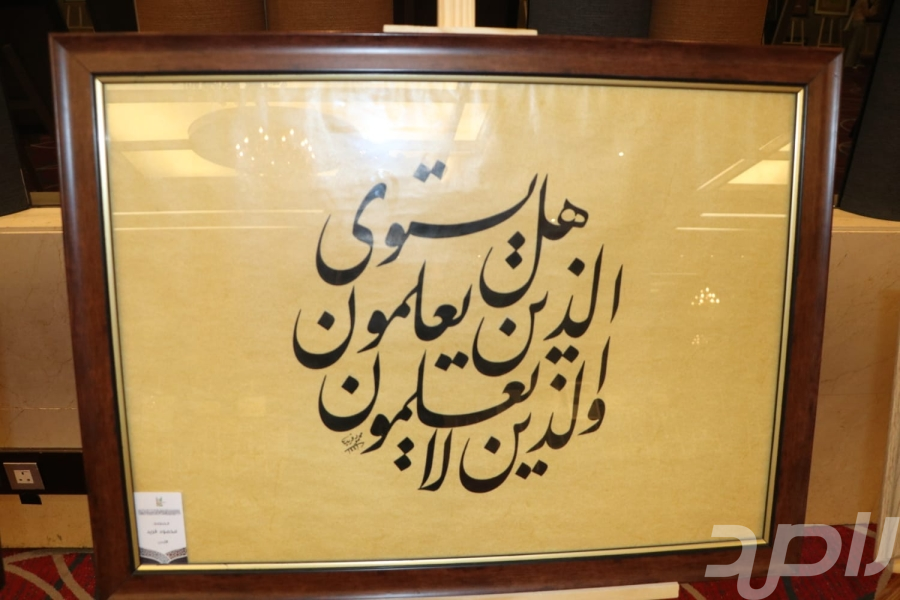 هل يستوى
الذين يعلمون
والذين لا يعلمون
راصد